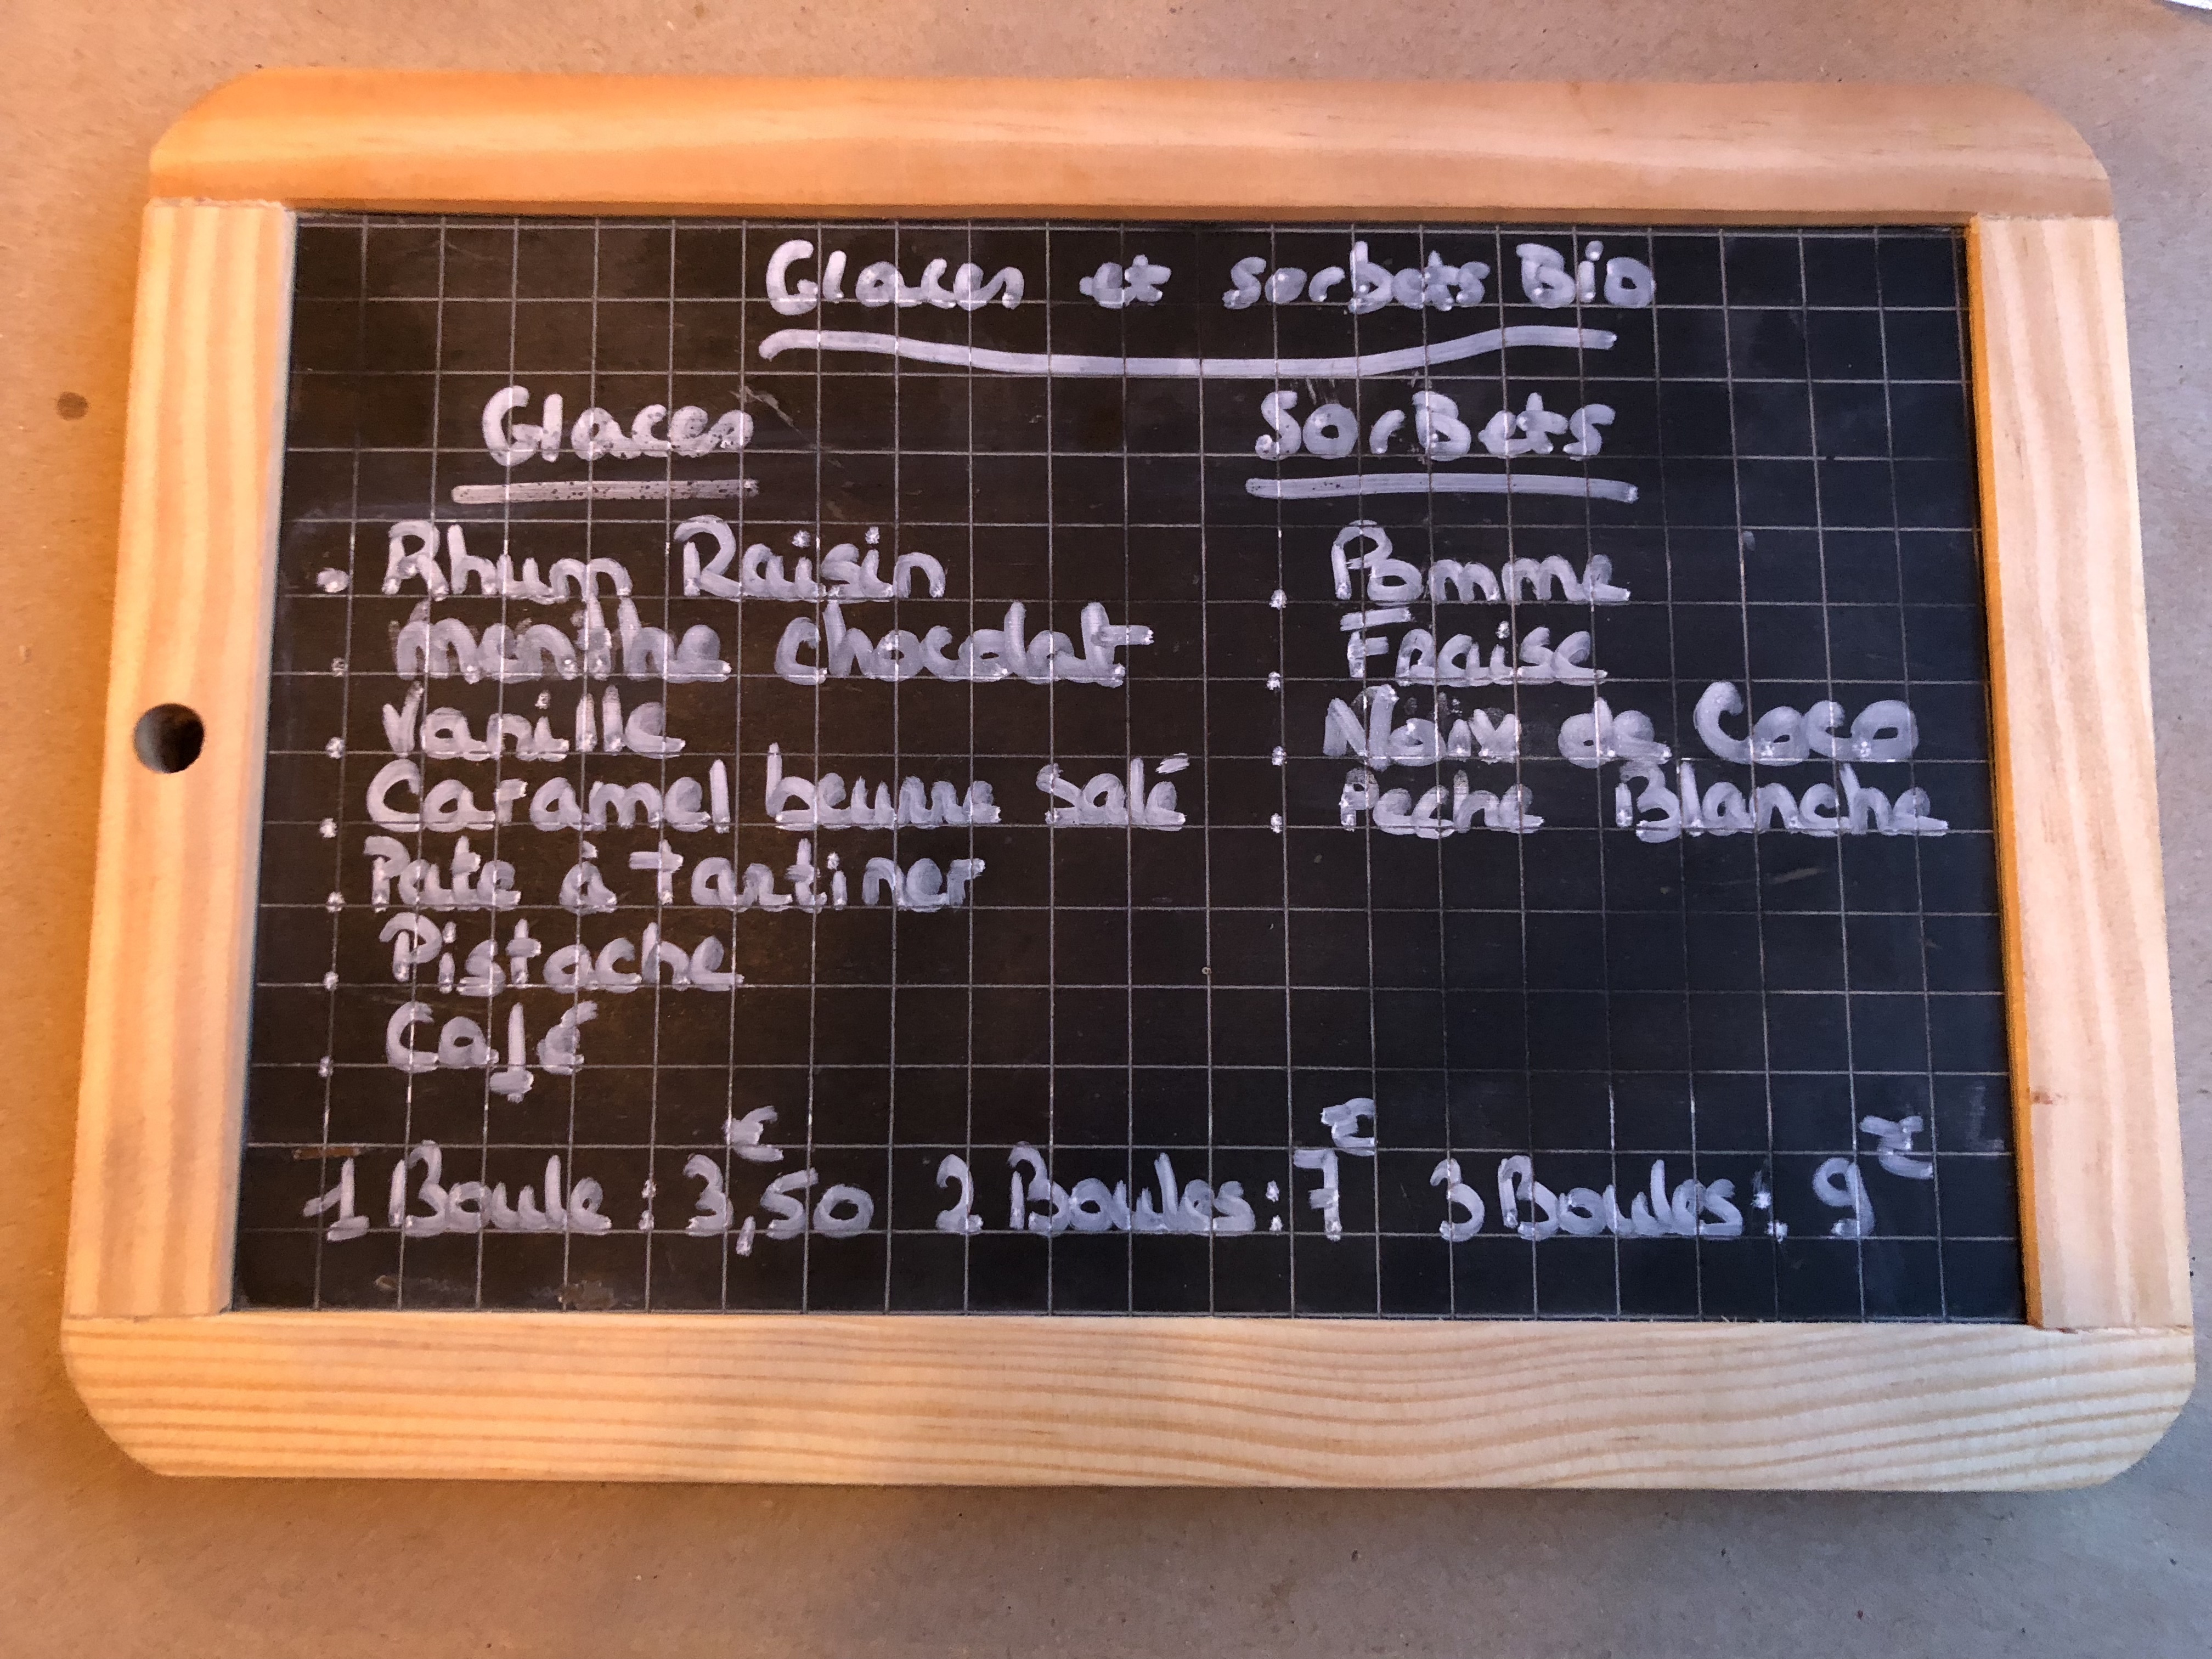 Glaces et sorbets Bio
Glaces
. Rhum Raisin
. menthe chocolat
. Vanille
. Caramel beurre salé
. Pate à tartiner
. Pistache
. Café
SorBets
. Pomme
. Fraise
. Noix de Coco
. Peche Blanche
1 Boule : 3,50€ 2 Boules : 7€ 3 Boules : 9€